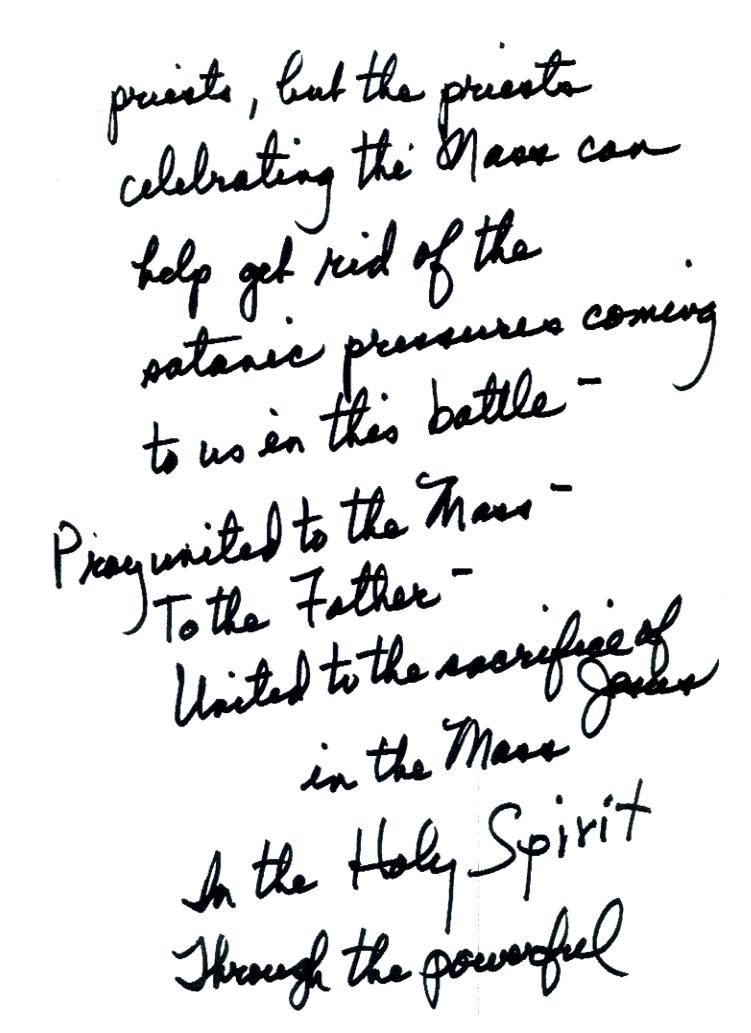 priests, but the priests
celebrating the Mass can
help get rid of the
satanic pressures coming
to us in this battle -
Pray united to the Mass -
To the Father -
United to the sacrifice of
Jesus
in the Mass
In the Holy Spirit
Through the powerful